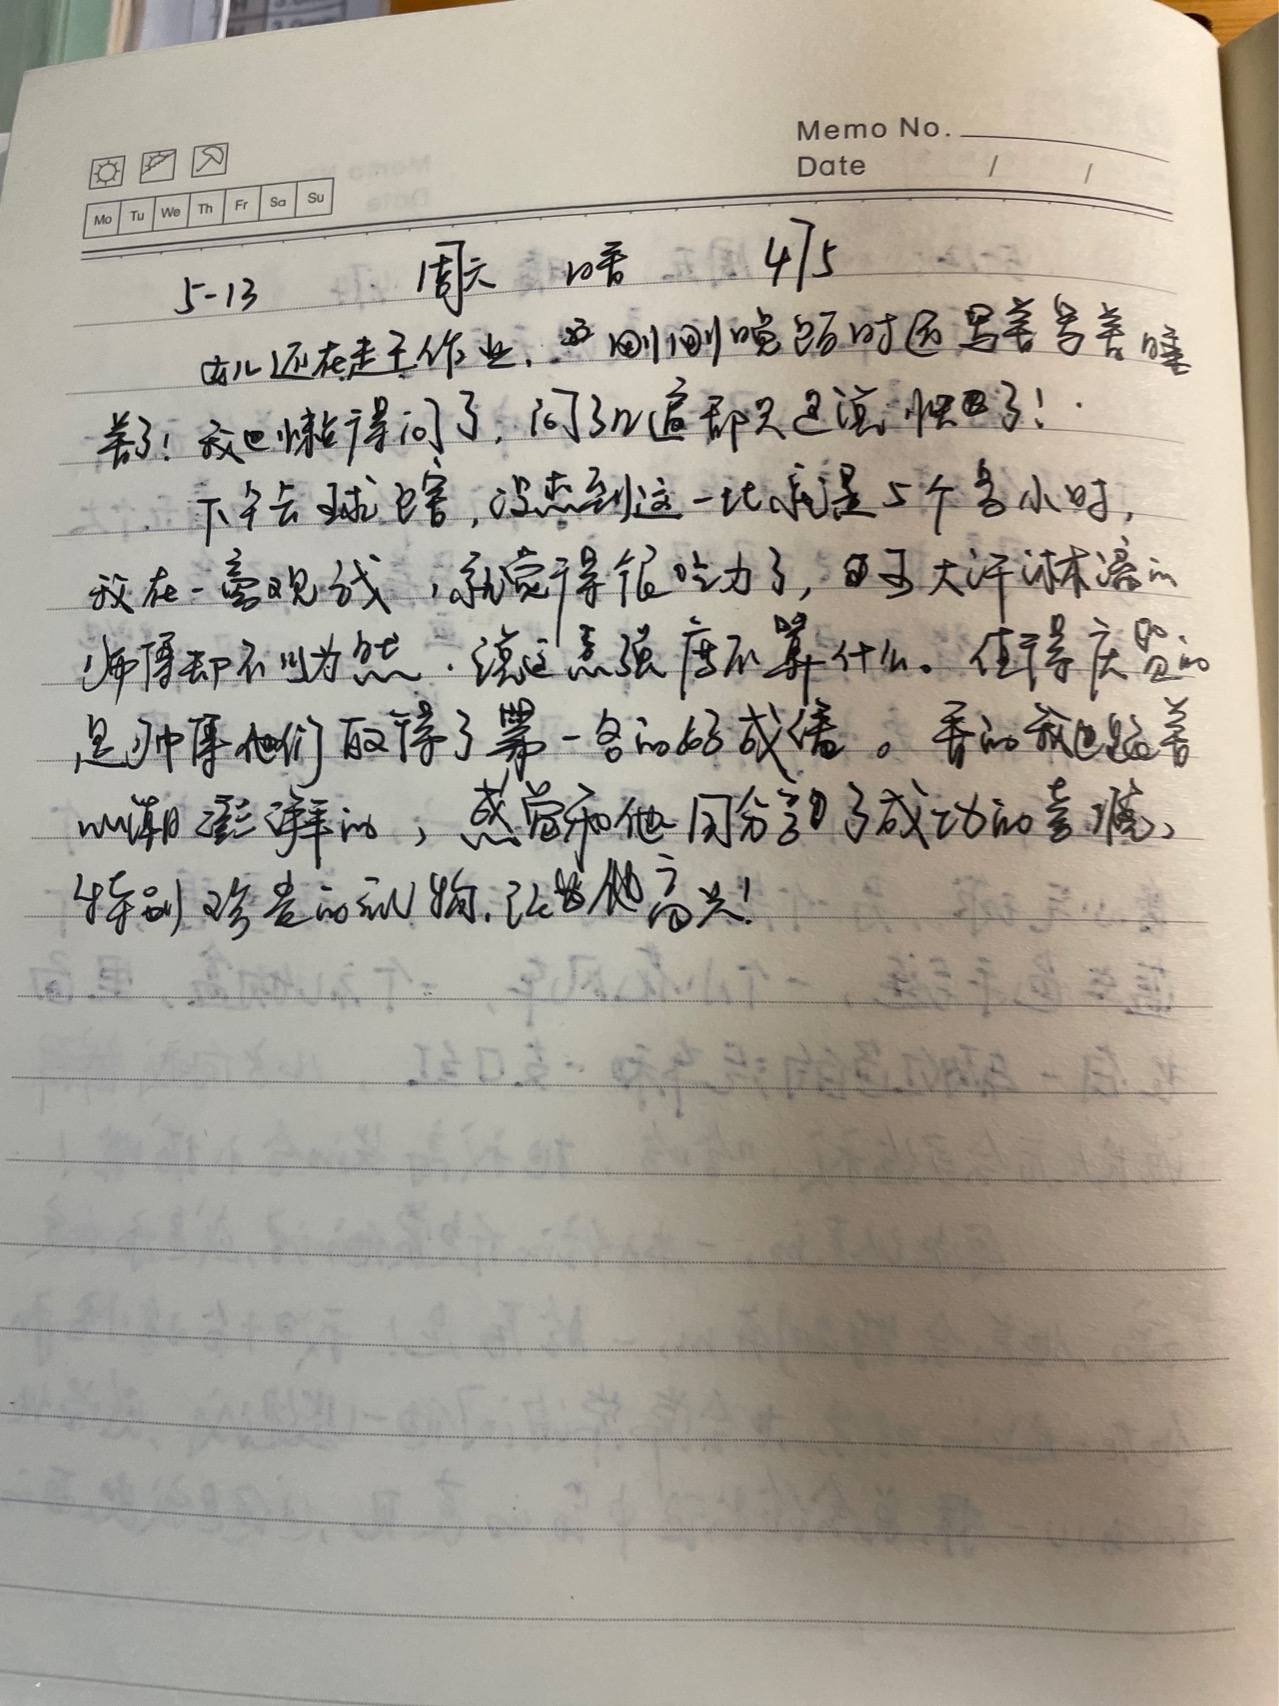 Memo No.
Date / /
Mo Tu We Th Fr Sa Su
5-13 周六 晴 4/5
女儿还在赶王作业，刚刚晚自时还写着写着睡
着了！我也懒得问了，问了几遍都只是说快了！
下午去球馆，没想到这一比就是5个多小时，
我在一旁观战，就觉得很吃力了，可大汗淋漓的
师傅却不以为然，说这点强度不算什么。值得庆贺的
是师傅他们取得了第一名的好成绩。看的我也跟着
心潮澎湃的，感觉和他同分享了成功的喜悦、
特别珍贵的礼物，让他高兴！